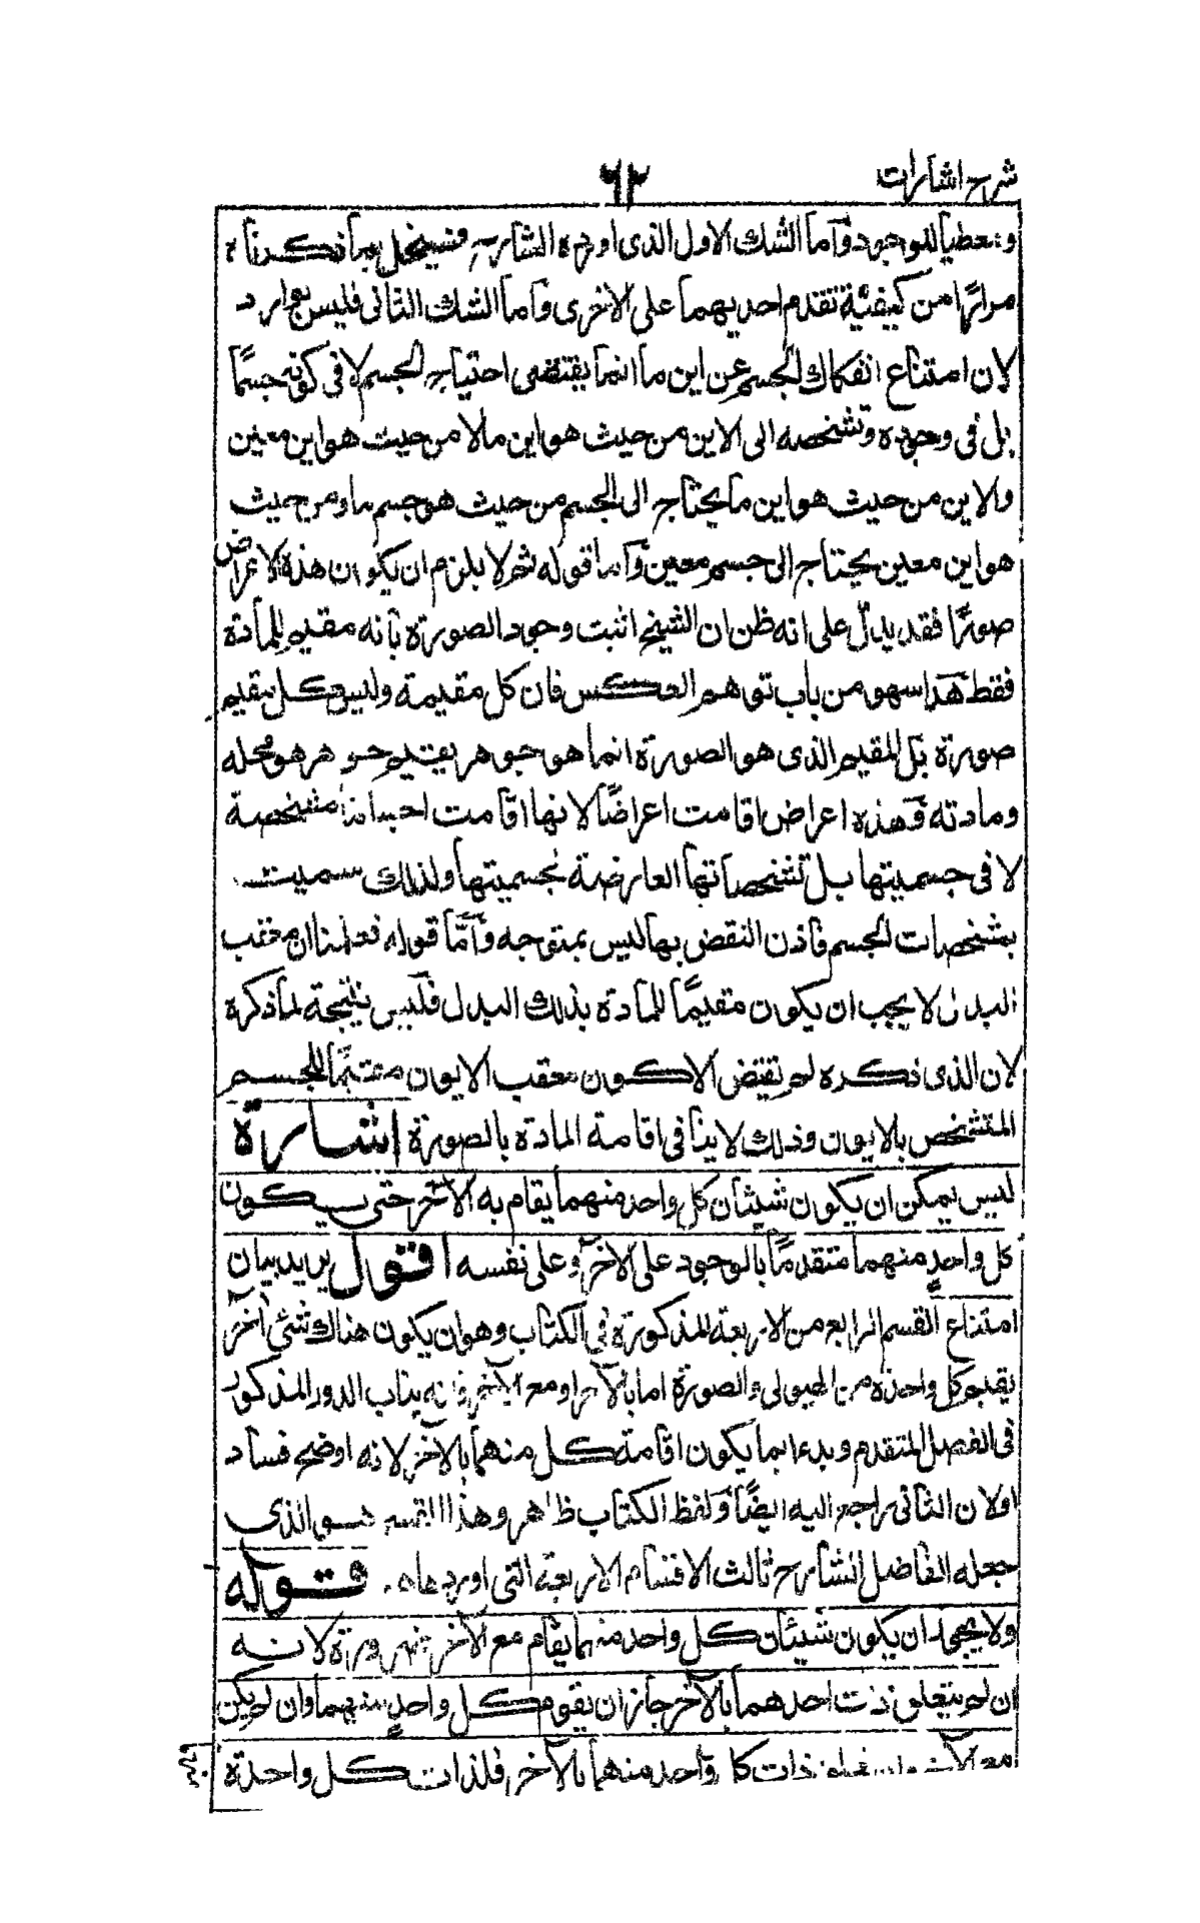 شرح اشارات
٦٢
ومعطيا للوجود وآما الشك الاول الذى اورده الشارح فسينحل بما ذكرنا
مرارًا من كيفية تقدم احديهما على الاخرى وآما الشك الثانى فليس بوارد
لان امتناع انفكاك الجسم عن اين ما انما يقتضى احتياج الجسم لا فى كونه جسمًا
بل فى وجوده وتشخصه الى الاين من حيث هو اين ما لا من حيث هو اين معين
والاين من حيث هو اين ما يحتاج الى الجسم من حيث هو جسم ما ومن حيث
هو اين معين يحتاج الى جسم معين وآما قوله ثم لا يلزم ان يكون هذه الاعراض
صورًا فقد يدل على انه ظن ان الشيخ اثبت وجود الصورة بآنه مقيم للمادة
فقط هَذا سهو من باب توهم العكس فان كل مقيمة وليس كل مقيم
صورة بَل المقيم الذى هو الصورة انما هو جوهر يقيم جوهر هو محله
ومادته وَهذه اعراض اقامت اعراضًا لانها اقامت اجساما متشخصة
لا فى جسميتها بل تشخصاتها العارضة لجسميتها ولذلك سميت
بمشخصات الجسم فاذن النقض بها ليس بمتوجه وَآمَّا قوله فعلمنا ان معقب
البدل لا يجب ان يكون مقيمًا للمادة بذلك البدل فلَيس نتيجة لما ذكره
لان الذى ذكره لم يقتض الا كون معقب الايون مقيمًا للجسم
المتشخص بالايون وذلك لا ينافى اقامة المادة بالصورة اشارة
ليس يمكن ان يكون شيئان كل واحد منهما يقام به الآخر حتى يكون
كل واحدٍ منهما متقدمًا بالوجود على الآخر وعلى نفسه اقول يريد بيان
امتناع القسم الرابع من الاربعة المذكورة فى الكتاب وهو ان يكون هناك شئ آخر
يقيم كل واحدة من الهيولى والصورة اما بالآخر او مع الآخر فانه يناب الدور المذكور
فى الفصل المتقدم وبدء بما يكون اقامة كل منهما بالآخر لانه اوضح فساد
اولان الثانى راجع اليه ايضًا وَلفظ الكتاب ظاهر وهذا القسم هو الذى
جعله الفاضل الشارح ثالث الاقسام الاربعة التى اوردها قوله
ولا يجوز ان يكون شيئان كل واحد منهما يقام مع الآخر ضرورة لانه
ان لم يتعلق ذات احدهما بالآخر جاز ان يقوم كل واحدٍ منهما وان لم يكن
مع الآخر وان تعلق ذات كل واحد منهما بالآخر فلذات كل واحدة